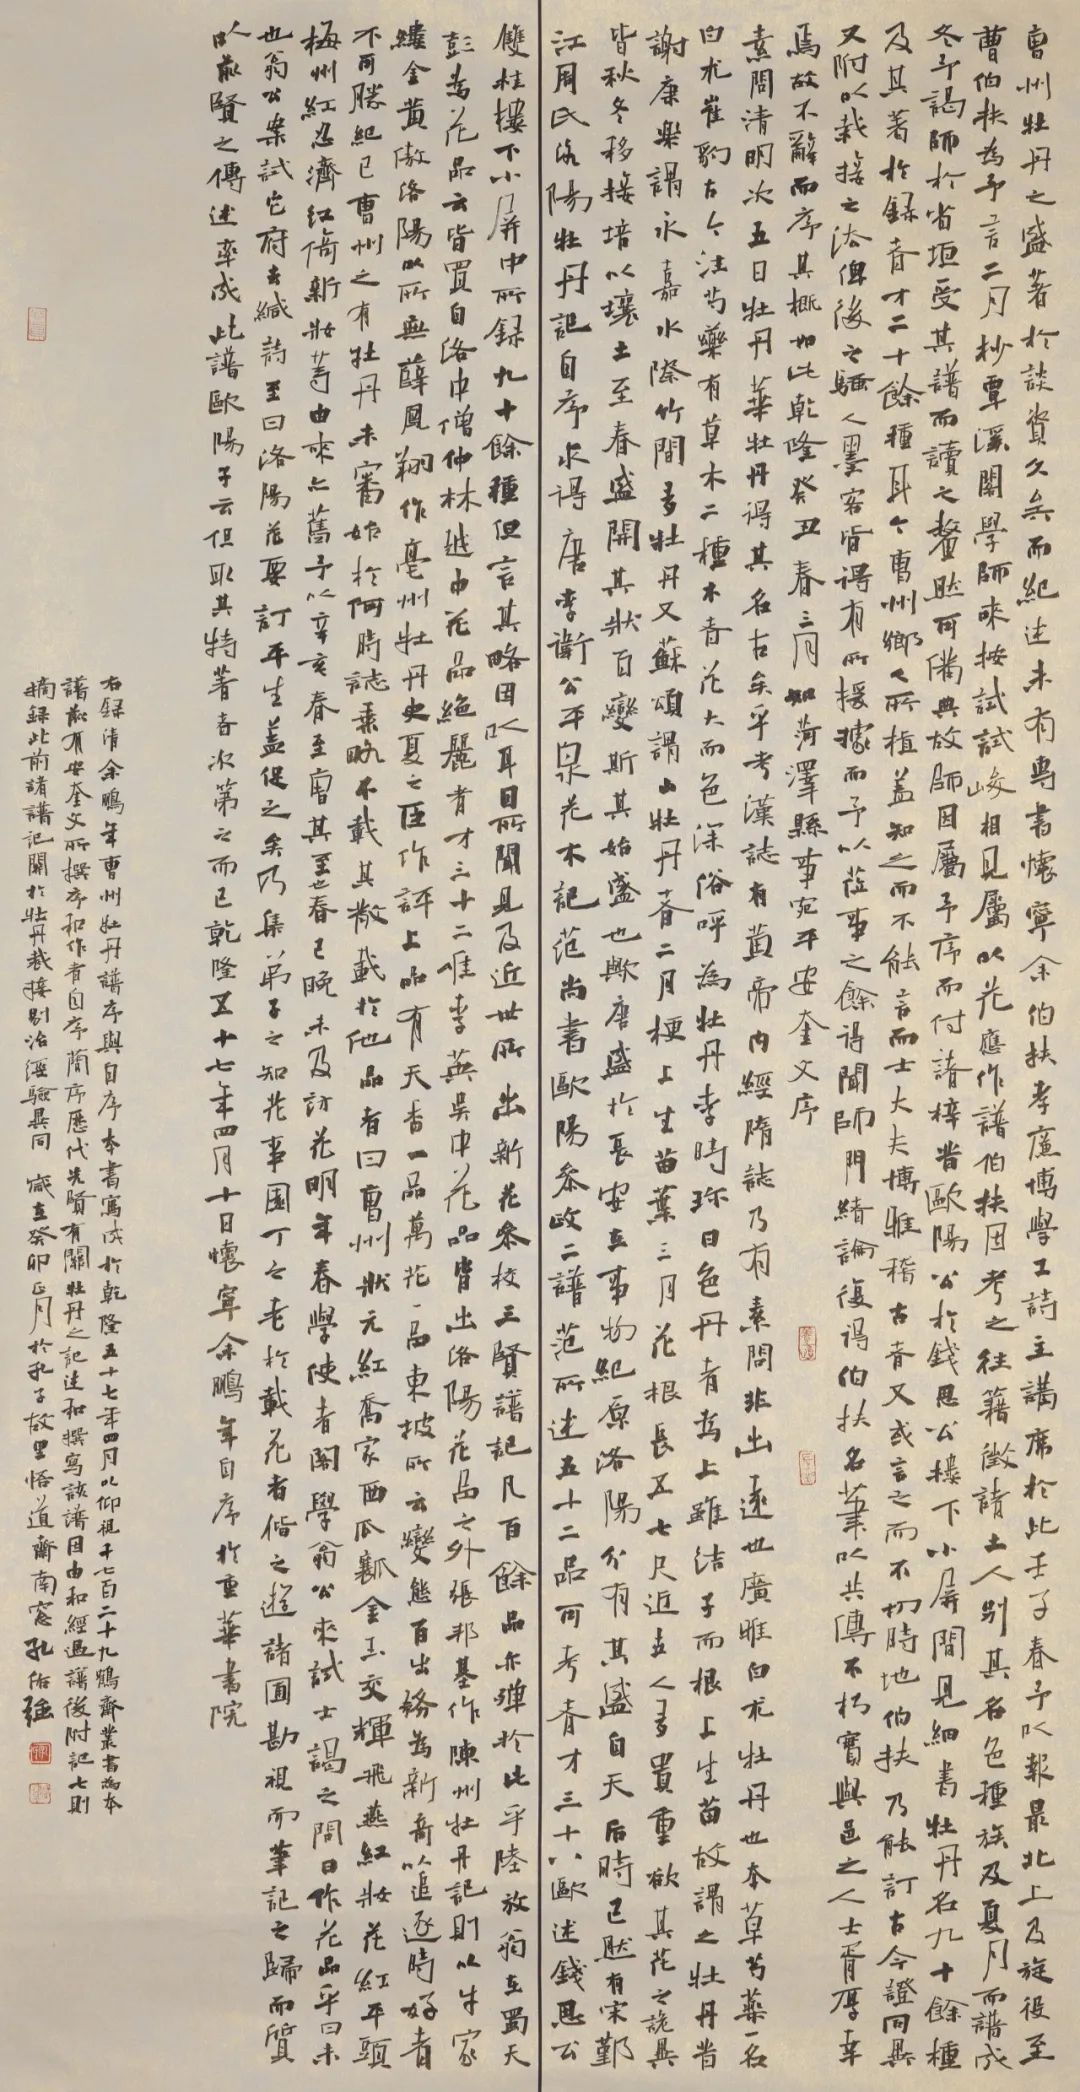 曹州牡丹之盛著於談資久矣而紀述未有專書懷寧余伯扶孝廉博學工詩主講席於此壬子春予以報最北上及旋役至
曹伯扶為予言二月杪覃溪閣學師來按試試峻相見屬以花應作譜伯扶因考之往籍徵諸土人別其名色種族及夏月而譜成
冬予謁師於省垣受其譜而讀之整然可備典故師因屬予序而付諸梓昔歐陽公於錢思公樓下小屏間見細書牡丹名九十餘種
及其著於錄者才二十餘種耳今曹州鄉人所植蓋知之而不能言而士大夫博雅稽古者又或言之而不切時地伯扶乃能訂古今證同異
又附以栽接之法俾後之騷人墨客皆得有所援據而予以蒞事之餘得聞師門緒論復得伯扶名筆以共傳不朽實與邑之人士胥厚幸
焉故不辭而序其概如此乾隆癸丑春三月知菏澤縣事宛平安奎文序
素問清明次五日牡丹華牡丹得其名古矣乎考漢誌有黃帝內經隋誌乃有素問非出遠也廣雅白朮牡丹也本草芍藥一名
白朮崔豹古今注芍藥有草木二種木者花大而色深俗呼為牡丹李時珍曰色丹者為上雖結子而根上生苗故謂之牡丹昔
謝康樂謂永嘉水際竹間多牡丹又蘇頌謂山牡丹者二月梗上生苗葉三月花根長五七尺近立人多貴重欲其花之詭異
皆秋冬移接培以壤土至春盛開其狀百變斯其始盛也歟唐盛於長安在事物紀原洛陽分有其盛自天后時已然有宋鄞
江周氏洛陽牡丹記自序求得唐李衛公平泉花木記范尚書歐陽參政二譜范所述五十二品可考者才三十八歐述錢思公
雙桂樓下小屏中所錄九十餘種但言其略因以耳目所聞見及近世所出新花參校三賢譜記凡百餘品亦殫於此乎陸放翁在蜀天
彭為花品云皆買自洛中僧仲林越中花品絕麗者才三十二惟李英吳中花品皆出洛陽花品之外張邦基作陳州牡丹記則以牛家
縷金黃傲洛陽以所無薛鳳翔作亳州牡丹史夏之臣作評上品有天香一品萬花一品東坡所云變態百出務為新奇以追逐時好者
不可勝紀已曹州之有牡丹未審始於何時誌乘略不載其散載於他品者曰曹州狀元紅喬家西瓜瓤金玉交輝飛燕紅妝花紅平頭
梅州紅忍濟紅倚新妝等由來亦舊予以辛亥春至曹其至也春已晚未及訪花明年春學使者閣學翁公來試士謁之間曰作花品乎曰未
也翁公案試它府去緘詩至曰洛陽花要訂平生蓋促之矣乃集弟子之知花事園丁之老於載花者偕之遊諸圃勘視而筆記之歸而質
以前賢之傳述率成此譜歐陽子云但取其特著者次第之而已乾隆五十七年四月十日懷寧余鵬年自序於重華書院
右錄清余鵬年曹州牡丹譜序與自序本書寫成於乾隆五十七年四月以仰視千七百二十九鶴齋叢書為本
譜前有安奎文所撰序和作者自序簡序歷代先賢有關牡丹之記述和撰寫該譜因由和經過譜後附記七則
摘錄此前諸譜記關於牡丹栽接剔治經驗異同 歲在癸卯正月於孔子故里悟道齋南窗孔佑強